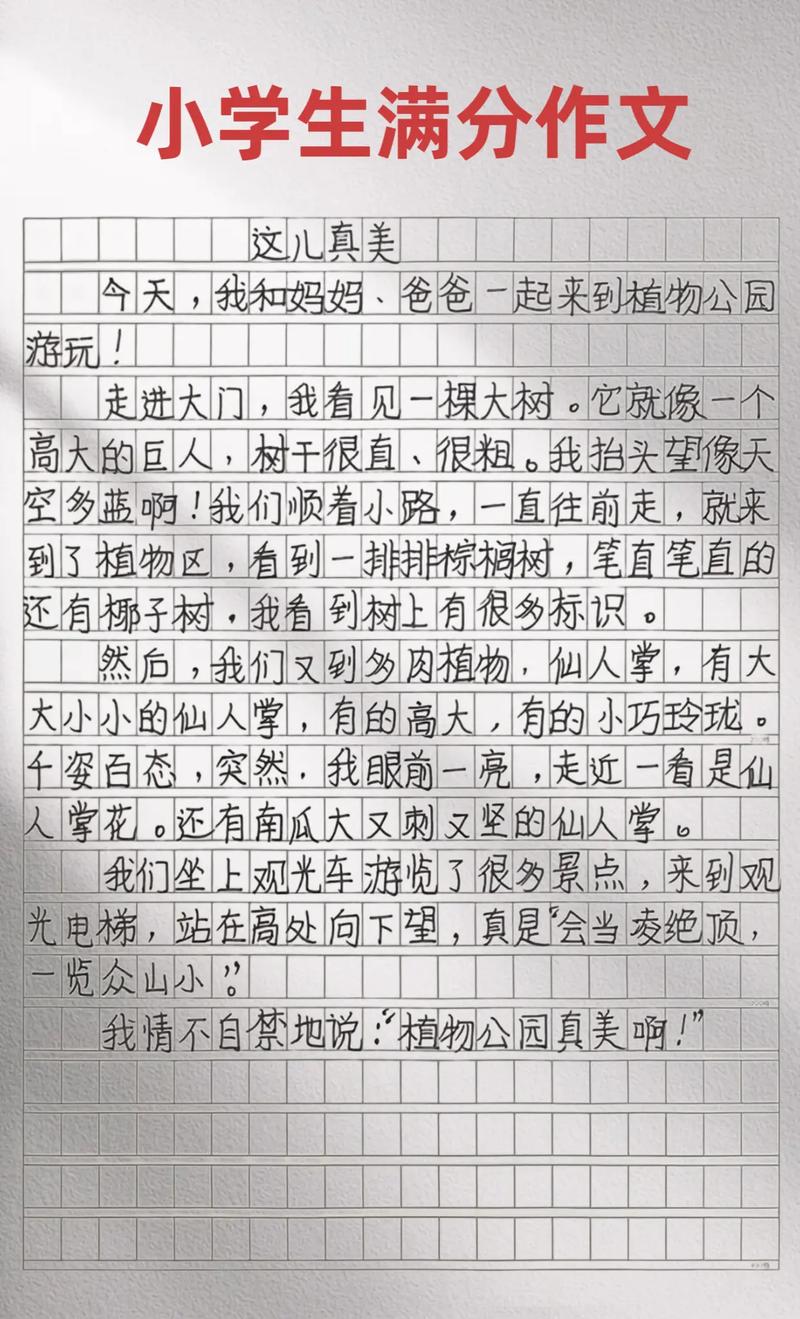 小学生满分作文
这儿真美
今天，我和妈妈、爸爸一起来到植物公园
游玩！
走进大门，我看见一棵大树。它就像一个
高大的巨人，树干很直、很粗。我抬头望像天
空多蓝啊！我们顺着小路，一直往前走，就来
到了植物区，看到一排排棕榈树，笔直笔直的
还有椰子树，我看到树上有很多标识。
然后，我们又到多肉植物，仙人掌，有大
大小小的仙人掌，有的高大，有的小巧玲珑。
千姿百态，突然，我眼前一亮，走近一看是仙
人掌花。还有南瓜大又刺又坚的仙人掌。
我们坐上观光车游览了很多景点，来到观
光电梯，站在高处向下望，真是“会当凌绝顶，
一览众山小”。
我情不自禁地说：“植物公园真美啊！”